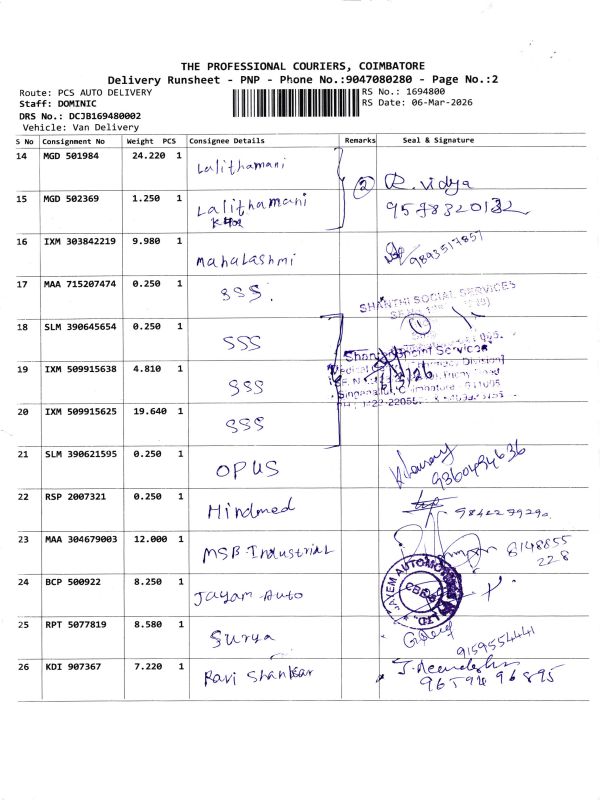 THE PROFESSIONAL COURIERS, COIMBATORE
Delivery Runsheet - PNP - Phone No.:9047080280 - Page No.:2
Route: PCS AUTO DELIVERY
RS No.: 1694800
Staff: DOMINIC
RS Date: 06-Mar-2026
DRS No.: DCJB169480002
Vehicle: Van Delivery
S No Consignment No Weight PCS Consignee Details Remarks Seal & Signature
14 MGD 501984 24.220 1 Lalithamani
2 R. vidya
15 MGD 502369 1.250 1 Lalithamani
9578320132
16 IXM 303842219 9.980 1 Mahalashmi 9893517857
17 MAA 715207474 0.250 1 SSS.
SHANTHI SOCIAL SERVICES
18 SLM 390645654 0.250 1 SSS
1
Social Services
19 IXM 509915638 4.810 1 SSS
Coimbatore
20 IXM 509915625 19.640 1 SSS
21 SLM 390621595 0.250 1 OPUS 9360494636
22 RSP 2007321 0.250 1 Hindmed
23 MAA 304679003 12.000 1 MSB Industrial 8148855
228
24 BCP 500922 8.250 1 Jayam Auto
JAYEM AUTOMOTIVES LTD.
25 RPT 5077819 8.580 1 Surya
9159554441
26 KDI 907367 7.220 1 Ravi Shankar
96594 96895